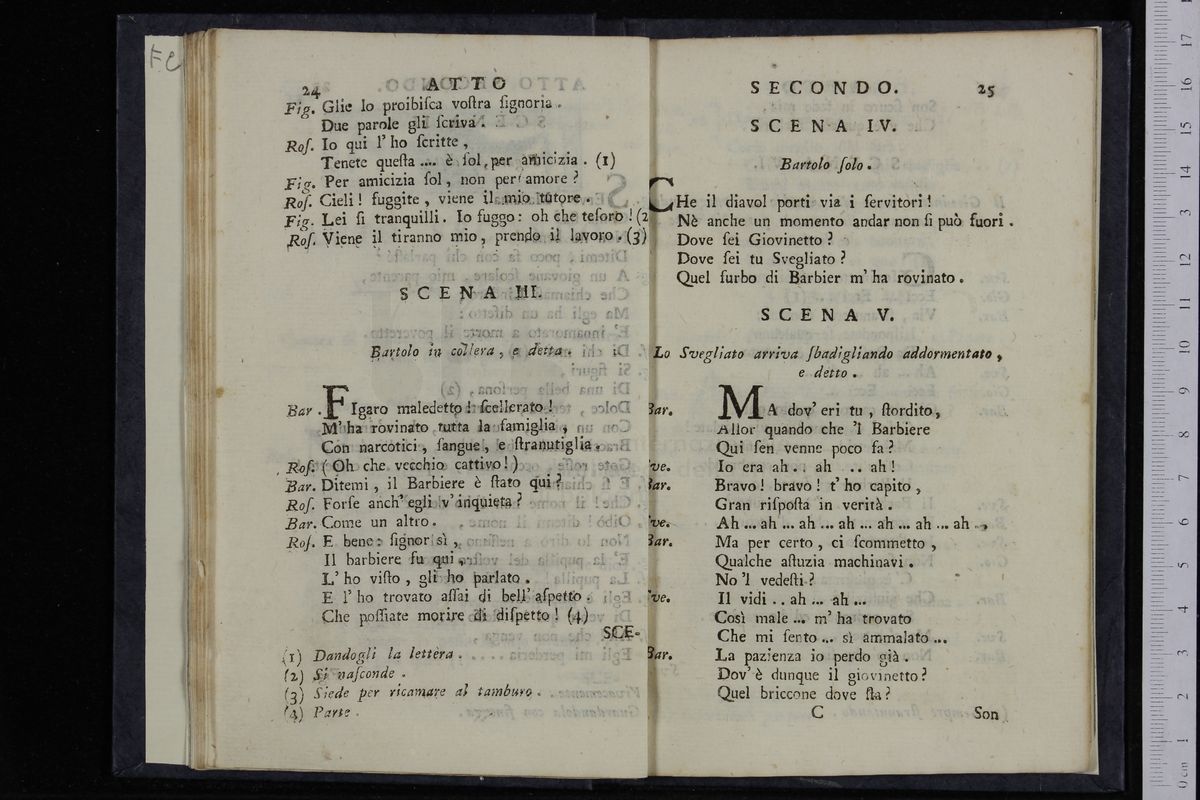 FC
24 ATTO
Fig. Glie lo proibiſca voſtra ſignoria.
Due parole gli ſcriva.
Roſ. Io qui l'ho ſcritte,
Tenete queſta .... è ſol per amicizia. (1)
Fig. Per amicizia ſol, non per amore?
Roſ. Cieli! fuggite, viene il mio tutore.
Fig. Lei ſi tranquilli. Io fuggo: oh che teſoro! (2
Roſ. Viene il tiranno mio, prendo il lavoro. (3)
SCENA III.
Bartolo in collera, e detta.
Bar. FIgaro maledetto! ſcellerato!
M'ha rovinato tutta la famiglia,
Con narcotici, ſangue, e ſtranutiglia.
Roſ. (Oh che vecchio cattivo!)
Bar. Ditemi, il Barbiere è ſtato qui?
Roſ. Forſe anch'egli v'inquieta?
Bar. Come un altro.
Roſ. E bene: ſignor sì,
Il barbiere fu qui,
L'ho viſto, gli ho parlato.
E l'ho trovato aſſai di bell'aſpetto.
Che poſſiate morire di diſpetto! (4)
SCE-
(1) Dandogli la lettera.
(2) Si naſconde.
(3) Siede per ricamare al tamburo.
(4) Parte.
SECONDO. 25
SCENA IV.
Bartolo ſolo.
CHe il diavol porti via i ſervitori!
Nè anche un momento andar non ſi può fuori.
Dove ſei Giovinetto?
Dove ſei tu Svegliato?
Quel furbo di Barbier m'ha rovinato.
SCENA V.
Lo Svegliato arriva ſbadigliando addormentato,
e detto.
Bar. MA dov'eri tu, ſtordito,
Allor quando che 'l Barbiere
Qui ſen venne poco fa?
Sve. Io era ah.. ah .. ah!
Bar. Bravo! bravo! t'ho capito,
Gran riſpoſta in verità.
Sve. Ah ... ah ... ah ... ah ... ah ... ah ... ah ..,
Bar. Ma per certo, ci ſcommetto,
Qualche aſtuzia machinavi.
No 'l vedeſti?
Sve. Il vidi .. ah ... ah ...
Così male ... m'ha trovato
Che mi ſento ... sì ammalato ...
Bar. La pazienza io perdo già.
Dov'è dunque il giovinetto?
Quel briccone dove ſta?
C Son
0 cm 1 2 3 4 5 6 7 8 9 10 11 12 13 14 15 16 17